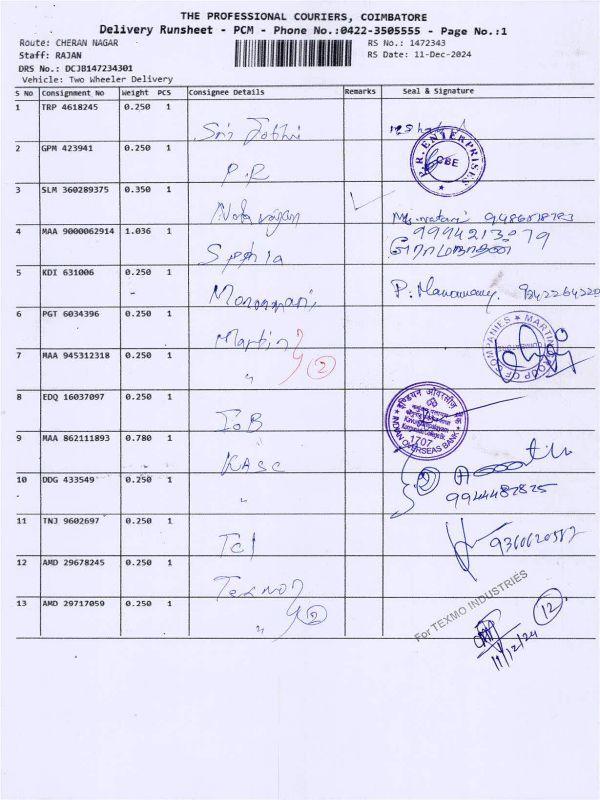 THE PROFESSIONAL COURIERS, COIMBATORE
Delivery Runsheet - PCM - Phone No.:0422-3505555 - Page No.:1
Route: CHERAN NAGAR RS No.: 1472343
Staff: RAJAN RS Date: 11-Dec-2024
DRS No.: DCJB147234301
Vehicle: Two Wheeler Delivery
S No Consignment No Weight PCS Consignee Details Remarks Seal & Signature
1 TRP 4618245 0.250 1
2 GPM 423941 0.250 1
P.R
P.R. ENTERPRISES
CBE
3 SLM 360289375 0.350 1
4 MAA 9000062914 1.036 1
9994213079
5 KDI 631006 0.250 1
6 PGT 6034396 0.250 1
Martin
MARTIN GROUP OF COMPANIES
7 MAA 945312318 0.250 1
" 2
8 EDQ 16037097 0.250 1
IOB
इण्डियन ओवरसीज़ बैंक
1707
INDIAN OVERSEAS BANK
9 MAA 862111893 0.780 1
KASC
10 DDG 433549 0.250 1
"
9944482825
11 TNJ 9602697 0.250 1
Tcl
12 AMD 29678245 0.250 1
For TEXMO INDUSTRIES
13 AMD 29717059 0.250 1
" 2
12
11/12/24